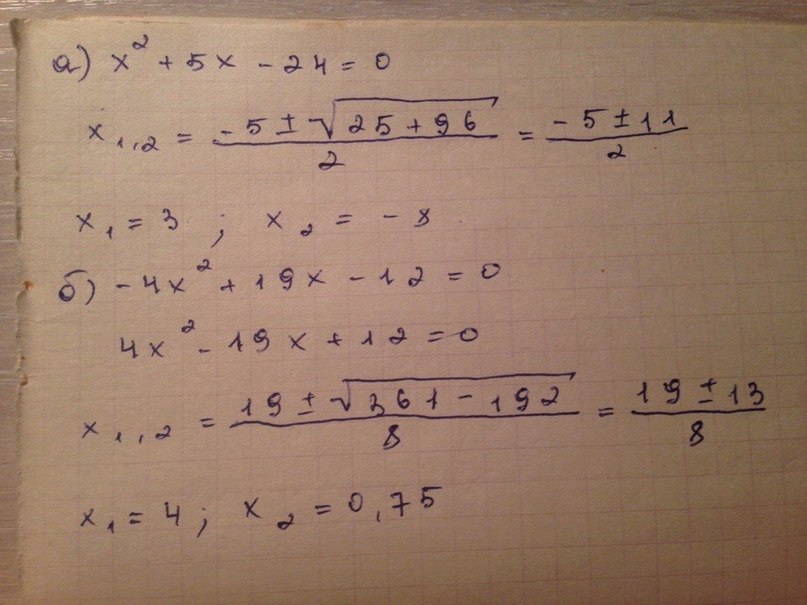 а) x² + 5x - 24 = 0
x₁,₂ = (-5 ± √(25 + 96))/2 = (-5 ± 11)/2
x₁ = 3 ; x₂ = - 8
б) - 4x² + 19x - 12 = 0
4x² - 19x + 12 = 0
x₁,₂ = (19 ± √(361 - 192))/8 = (19 ± 13)/8
x₁ = 4 ; x₂ = 0,75